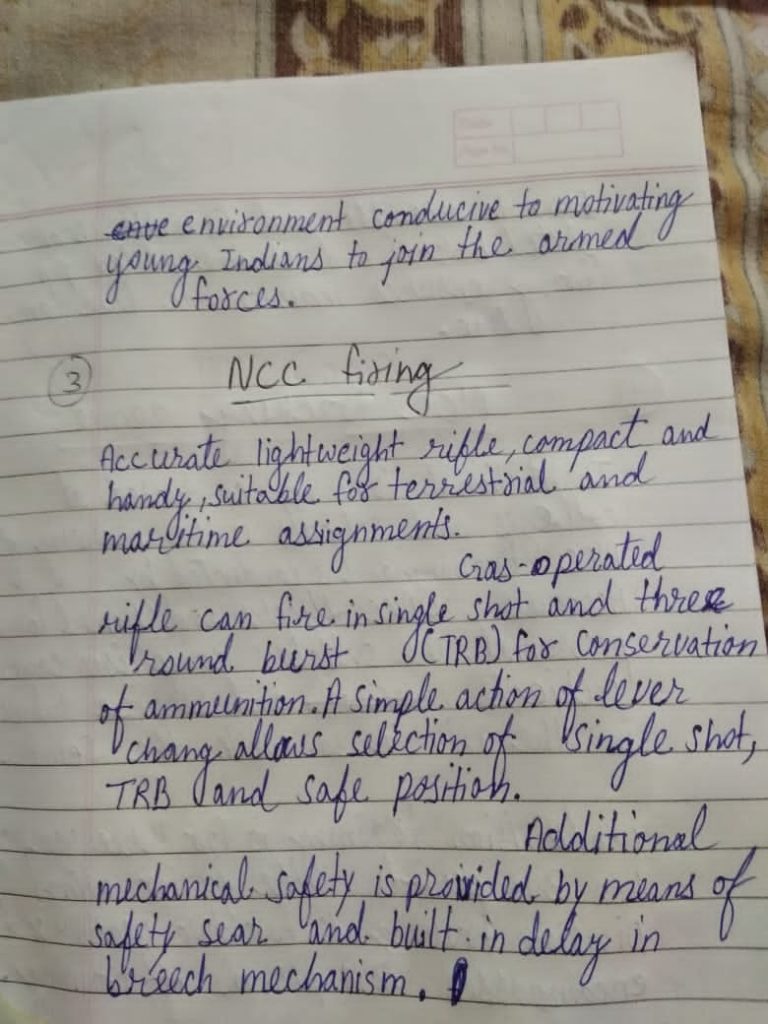 environment conducive to motivating
young Indians to join the armed
forces.
3
NCC firing
Accurate lightweight rifle, compact and
handy, suitable for terrestrial and
maritime assignments.
Gas-operated
rifle can fire in single shot and three
round burst (TRB) for conservation
of ammunition. A simple action of lever
chang allows selection of single shot,
TRB and safe position.
Additional
mechanical safety is provided by means of
safety sear and built-in delay in
breech mechanism.